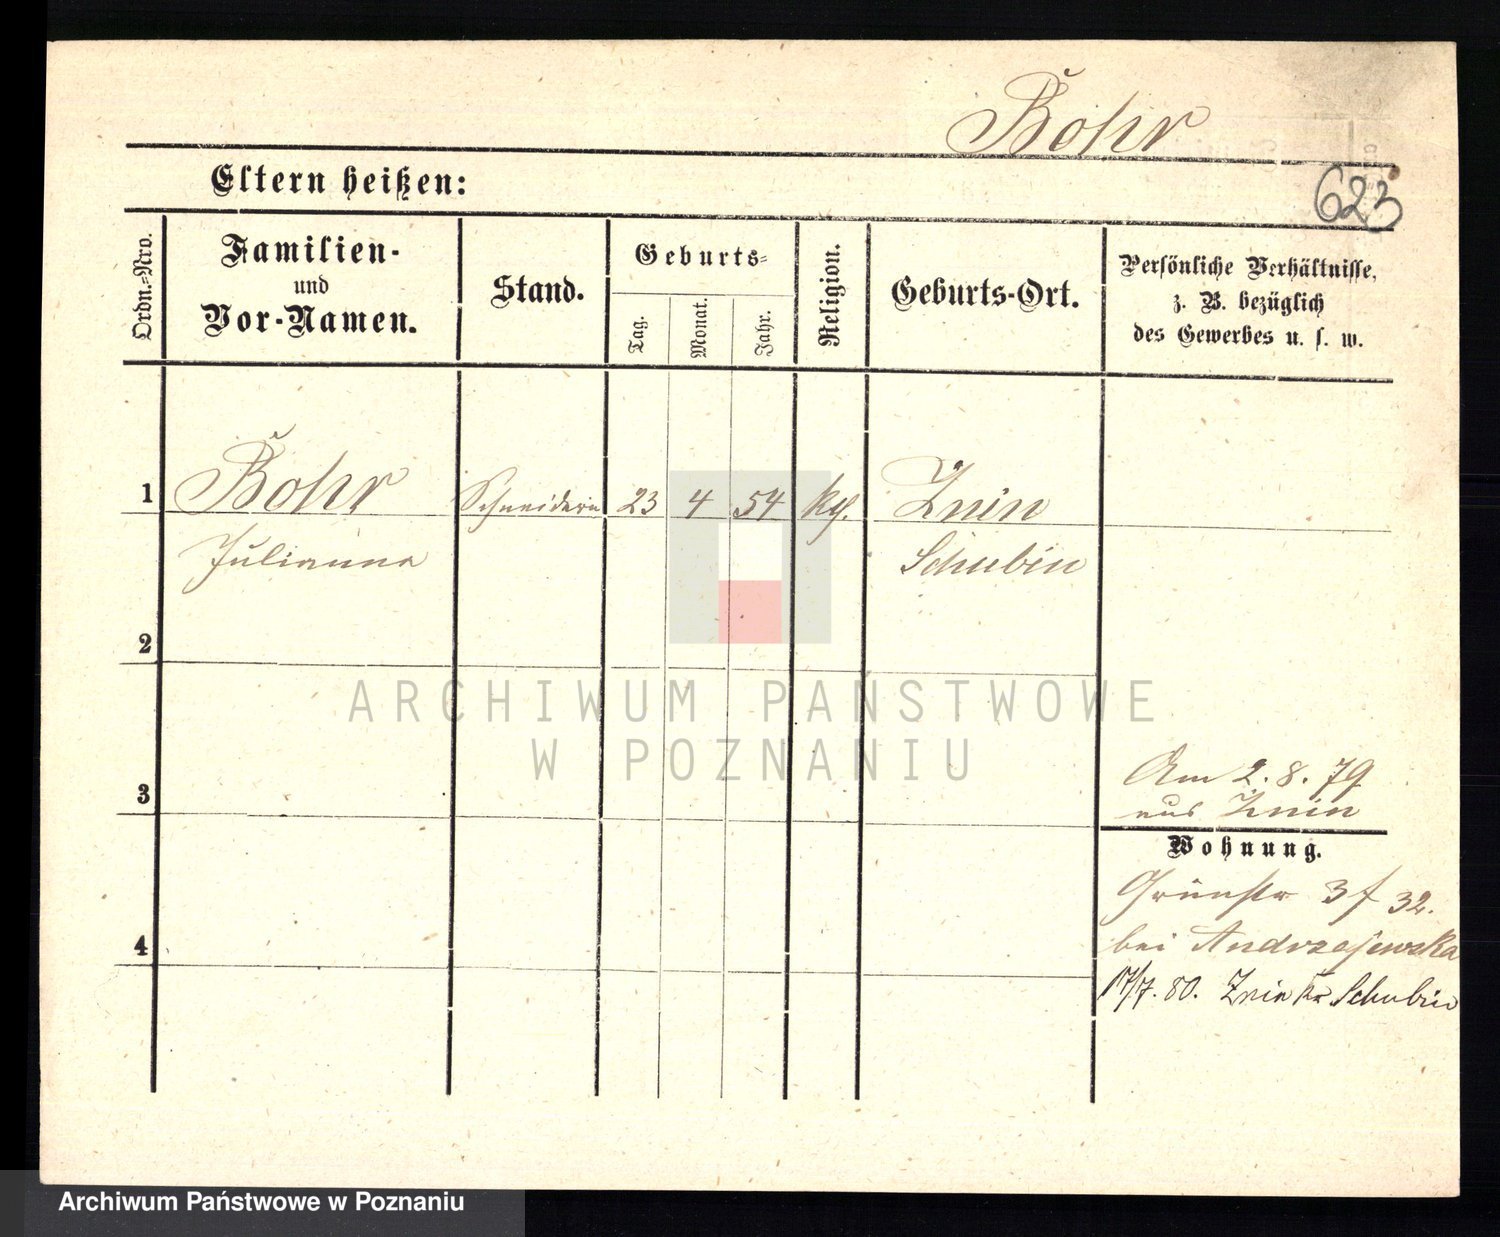 Bohr
Eltern heißen:
623
Ordn.-Nro.
Familien-
und
Vor-Namen.
Stand.
Geburts-
Tag.
Monat.
Jahr.
Religion.
Geburts-Ort.
Persönliche Verhältnisse,
z. B. bezüglich
des Gewerbes u. s. w.
1 Bohr Schneiderin 23 4 54 kg. Znin
Julianna Schubin
2
3
Am 2. 8. 79
aus Znin
Wohnung.
Grünstr 3 f 32.
bei Andrzejewska
4
17/7. 80. Znin Kr Schubin
ARCHIWUM PAŃSTWOWE
W POZNANIU
Archiwum Państwowe w Poznaniu